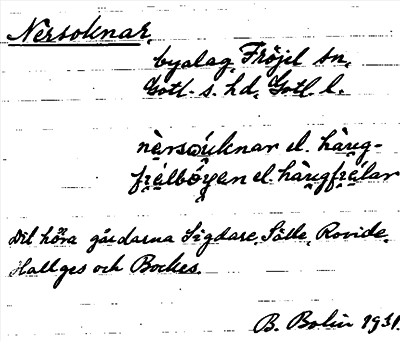 Nersoknar,
byalag, Fröjel sn,
Gotl. s. hd, Gotl. l.
nèrsọúknar el. hàug-
frẹ́lbǿyen el. hàugfrẹ́lar
Dit höra gårdarna Sigdare, Sälle, Rovide,
Hallges och Bockes.
B. Bolin 1931.